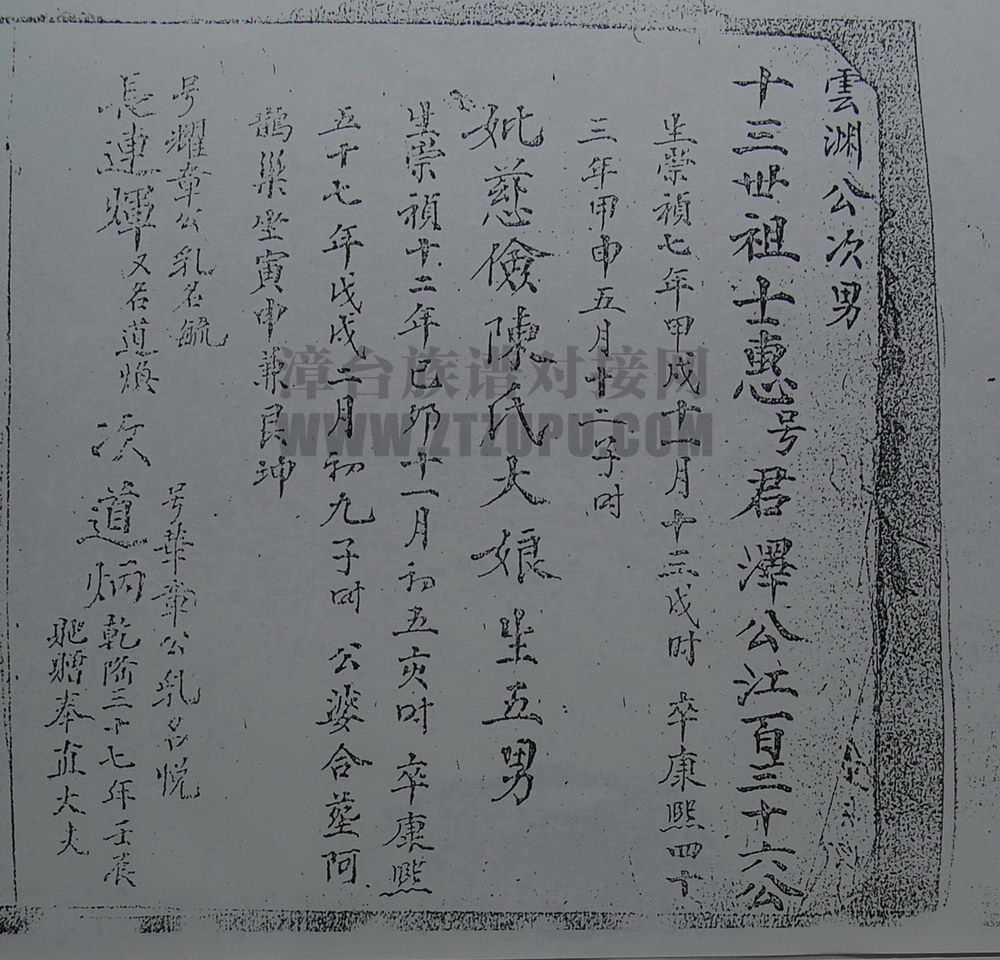 雲渊公次男
十三世祖士惠号君澤公江百三十六公
生崇禎七年甲戌十一月十三戌时 卒康熙四十
三年甲申五月十二子时
妣慈儉陳氏大娘生五男
生崇禎十二年己卯十一月初五亥时 卒康熙
五十七年戊戌二月初九子时 公婆合塟阿
鵲巢坐寅申兼艮坤
号耀章公乳名毓
長連暉又名道煥
号華章公乳名悦
次道炳乾隆三十七年壬辰
貤贈奉直大夫
漳台族谱对接网
WWW.ZTZUPU.COM